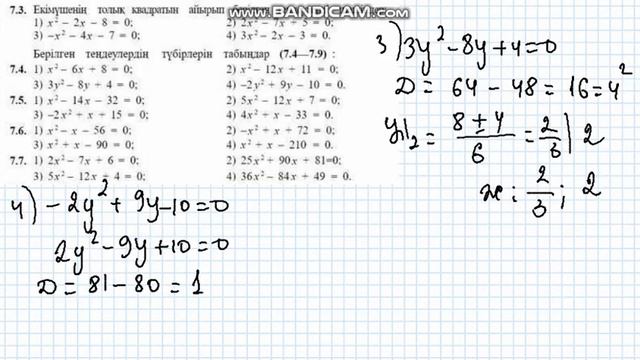 www.BANDICAM.com
7.3. Екімүшенің толық квадратын айырып
1) x² − 2x − 8 = 0; 2) 2x² − 7x + 5 = 0;
3) −x² − 4x − 7 = 0; 4) 3x² − 2x − 3 = 0.
Берілген теңдеулердің түбірлерін табыңдар (7.4—7.9) :
7.4. 1) x² − 6x + 8 = 0; 2) x² − 12x + 11 = 0;
3) 3y² − 8y + 4 = 0; 4) −2y² + 9y − 10 = 0.
7.5. 1) x² − 14x − 32 = 0; 2) 5x² − 12x + 7 = 0;
3) −2x² + x + 15 = 0; 4) 4x² + x − 33 = 0.
7.6. 1) x² − x − 56 = 0; 2) −x² + x + 72 = 0;
3) x² + x − 90 = 0; 4) x² + x − 210 = 0.
7.7. 1) 2x² − 7x + 6 = 0; 2) 25x² + 90x + 81=0;
3) 5x² − 12x + 4 = 0; 4) 36x² − 84x + 49 = 0.
3) 3y² − 8y + 4 = 0
D = 64 − 48 = 16 = 4²
y₁|₂ = (8 ± 4)/6 = 2/3 | 2
ж: 2/3; 2
4) −2y² + 9y − 10 = 0
2y² − 9y + 10 = 0
D = 81 − 80 = 1